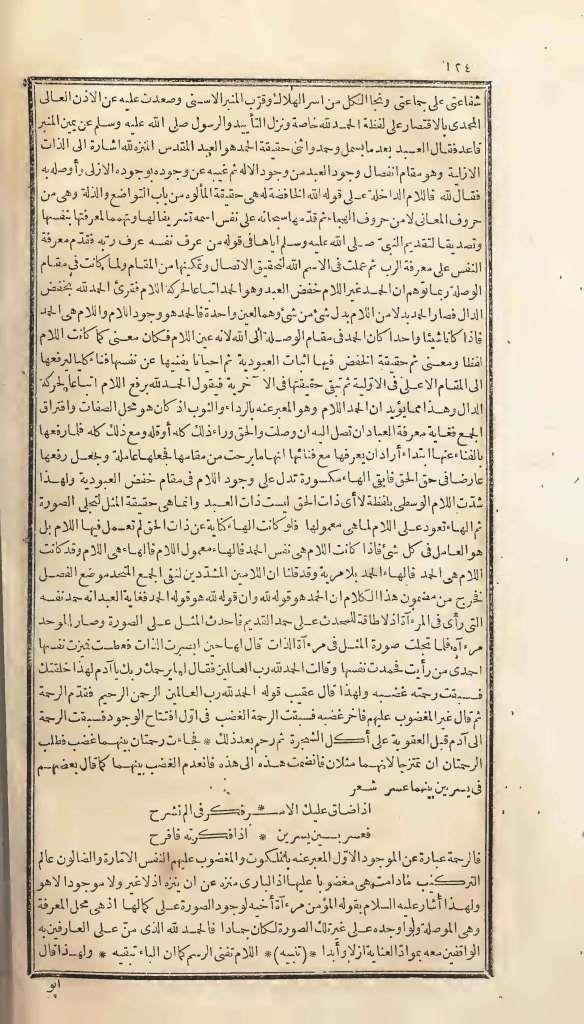 ١٢٤
شفاعتي على جماعتي ونجا الكل من أسر الهلاك وقرّب المنبر الاسنى وصعدت عليه عن الاذن العالى
المحمدى بالاقتصار على لفظة الحمد لله خاصة ونزل التأييد والرسول صلى الله عليه وسلم عن يمين المنبر
قاعد فقال العبيد بعد ما بسمل وحمد وأثنى حقيقة الحمد هو العبد المقدس المنزه لله اشارة الى الذات
الازلية وهو مقام انفصال وجود العبد من وجود الاله ثم غيبه عن وجوده بوجوده الازلى وأوصله به
فقال لله فاللام الداخلة على قوله الله الخافضة له هى حقيقة المألوه من باب التواضع والذلة وهى من
حروف المعانى لا من حروف الهجاء ثم قدّمها سبحانه على نفس اسمه تشريفا لها وتهمما لمعرفتها بنفسها
وتصديقا لتقديم النبى صلى الله عليه وسلم اياها فى قوله من عرف نفسه عرف ربه فقدّم معرفة
النفس على معرفة الرب ثم عملت فى الاسم الله لتحقيق الاتصال وتمكينها من المقام ولما كانت فى مقام
الوصلة ربما توهم ان الحمد غير اللام خفض العبد وهو الحمد اتباعا لحركة اللام فقرئ الحمد لله بخفض
الدال فصار الحمد بدلا من اللام بدل شئ من شئ وهما لعين واحدة فالحمد هو وجود اللام واللام هى الحمد
فاذا كانا شيئا واحدا كان الحمد فى مقام الوصلة الى الله لانه عين اللام فكان معنى كما كانت اللام
لفظا ومعنى ثم حقيقة الخفض فيها اثبات العبودية ثم احيانا يفنيها عن نفسها فناء كليا ليرفعها
الى المقام الاعلى فى الاولية ثم تبقى حقيقتها فى الآخرية فيقول الحمد لله برفع اللام اتباعا لحركة
الدال وهذا مما يؤيد ان الحمد اللام وهو المعبر عنه بالرداء والثوب اذ كان هو محل الصفات وافتراق
الجمع فغاية معرفة العباد ان تصل اليه ان وصلت والحق وراء ذلك كله أو قل ومع ذلك كله فلما رفعها
بالفناء عنها ابتداء أراد ان يعرفها مع فنائها انها ما برحت من مقامها فجعلها عاملة وجعل رفعها
عارضا فى حق الحق فابقى الهاء مكسورة تدل على وجود اللام فى مقام خفض العبودية ولهذا
شدّت اللام الوسطى بلفظة لا أى ذات الحق ليست ذات العبد وانما هى حقيقة المثل لتجلى الصورة
ثم الهاء تعود على اللام لما هى معمولها فلو كانت الهاء كناية عن ذات الحق لم تعمل فيها اللام بل
هو العامل فى كل شئ فاذا كانت اللام هى نفس الحمد فالهاء معمول اللام فالهاء هى اللام وقد كانت
اللام هى الحمد فالهاء الحمد بلا مرية وقد قلنا ان اللامين المشدّدين لنفى الجمع المتحد موضع الفصل
فخرج من مضمون هذا الكلام ان الحمد هو قوله لله وان قوله لله هو قوله الحمد فغاية العبد انه حمد نفسه
التى رأى فى المرءآة اذ لا طاقة للمحدث على حمد القديم فاحدث المثل على الصورة وصار الموحد
مرءآة فلما تجلت صورة المثل فى مرءآة الذات قال لها حين ابصرت الذات فعطست فميزت نفسها
احمدى من رأيت فحمدت نفسها وقالت الحمد لله رب العالمين فقال لها يرحمك ربك يا آدم لهذا خلقتك
فسبقت رحمته غضبه ولهذا قال عقيب قوله الحمد لله رب العالمين الرحمن الرحيم فقدّم الرحمة
ثم قال غير المغضوب عليهم فاخر غضبه فسبقت الرحمة الغضب فى اول افتتاح الوجود فسبقت الرحمة
الى آدم قبل العقوبة على أكل الشجرة ثم رحم بعد ذلك * فجاءت رحمتان بينهما غضب فطلب
الرحمتان ان تمتزجا لانهما مثلان فانضمت هذه الى هذه فانعدم الغضب بينهما كما قال بعضهم
فى يسرين بينهما عسر شعر
اذا ضاق عليك الامـ * ـر فكر فى الم نشرح
فعسر بين يسرين * اذا فكرته فافرح
فالرحمة عبارة عن الموجود الاول المعبر عنه بالملكوت والمغضوب عليهم النفس الامارة والضالون عالم
التركيب مادامت هى مغضوبا عليها اذ البارى منزه عن ان ينزه اذ لا غير ولا موجود الا هو
ولهذا أشار عليه السلام بقوله المؤمن مرءآة أخيه لوجود الصورة على كمالها اذ هى محل المعرفة
وهى الموصلة ولو أوجده على غير تلك الصورة لكان جمادا فالحمد لله الذى منّ على العارفين به
الواقفين معه بموادّ العناية أزلا وأبدا * (تنبيه) * اللام تفنى الرسم كما ان الباء تبقيه * ولهذا قال
ابو